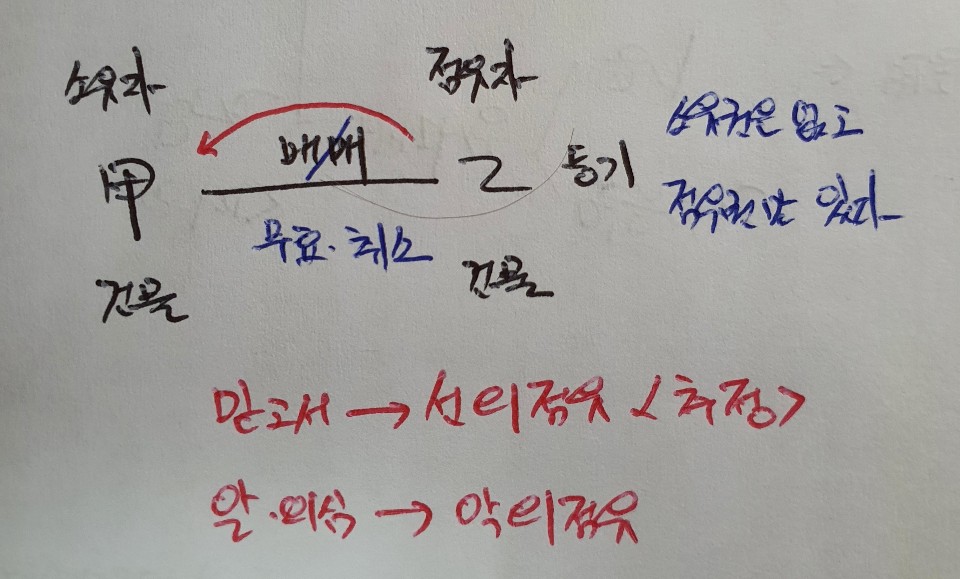 소유자 점유자
매매
甲 乙 등기
무효·취소
건물 건물
소유권은 없고
점유권만 있다
믿고서 → 선의점유 <추정>
알·의심 → 악의점유